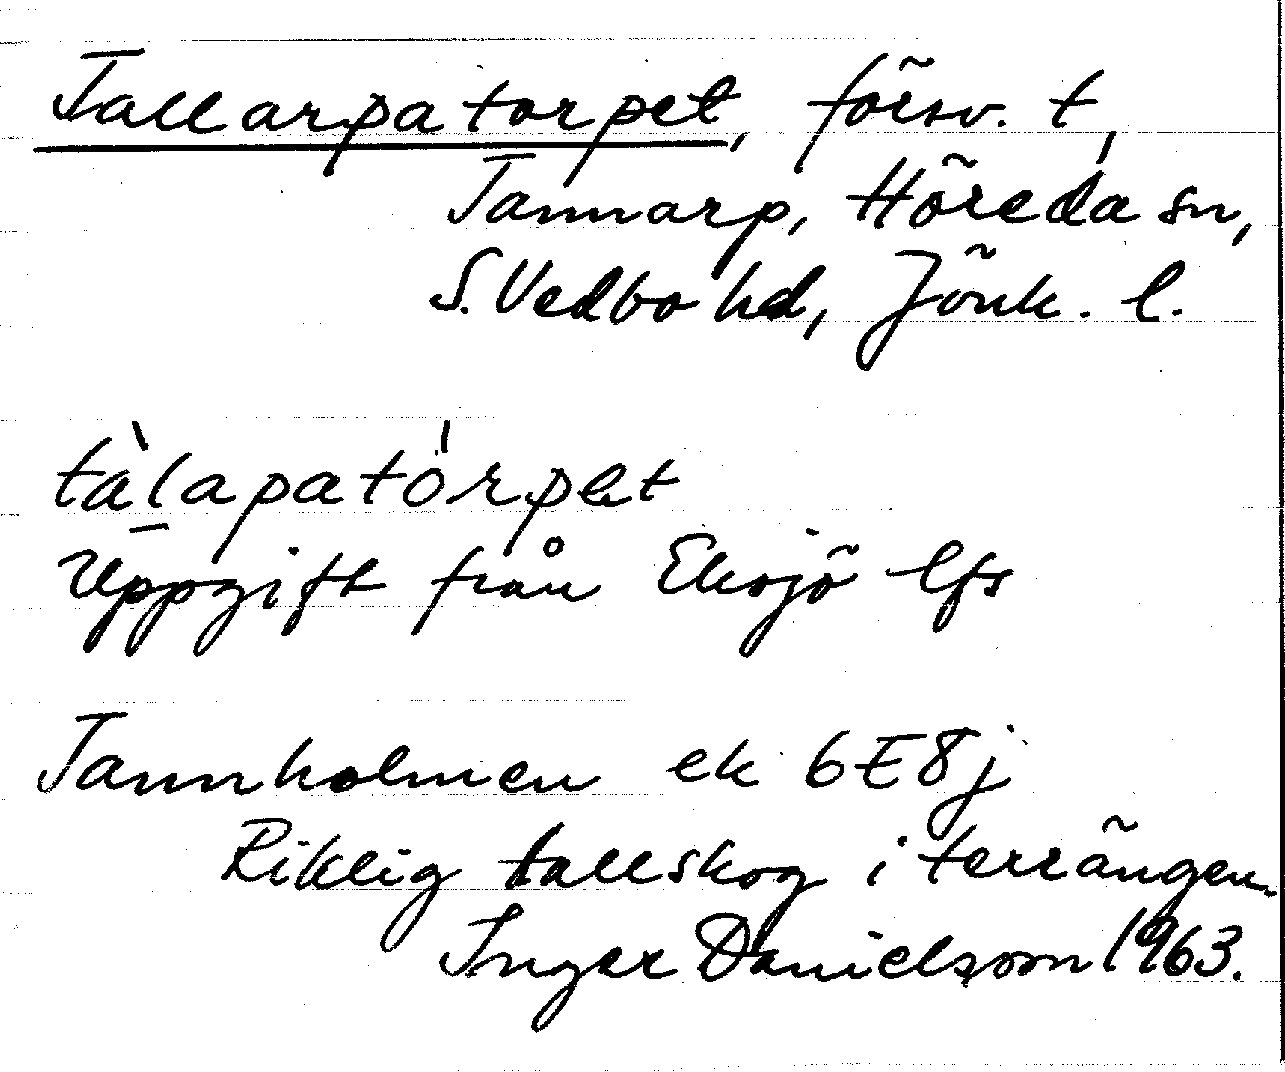 Tallarpatorpet, försv. t,
Tannarp, Höreda sn,
S. Vedbo hd, Jönk. l.
tàlapatórpet
Uppgift från Eksjö lfs
Tannholmen ek 6E8j
Riklig tallskog i terrängen.
Inger Danielsson 1963.